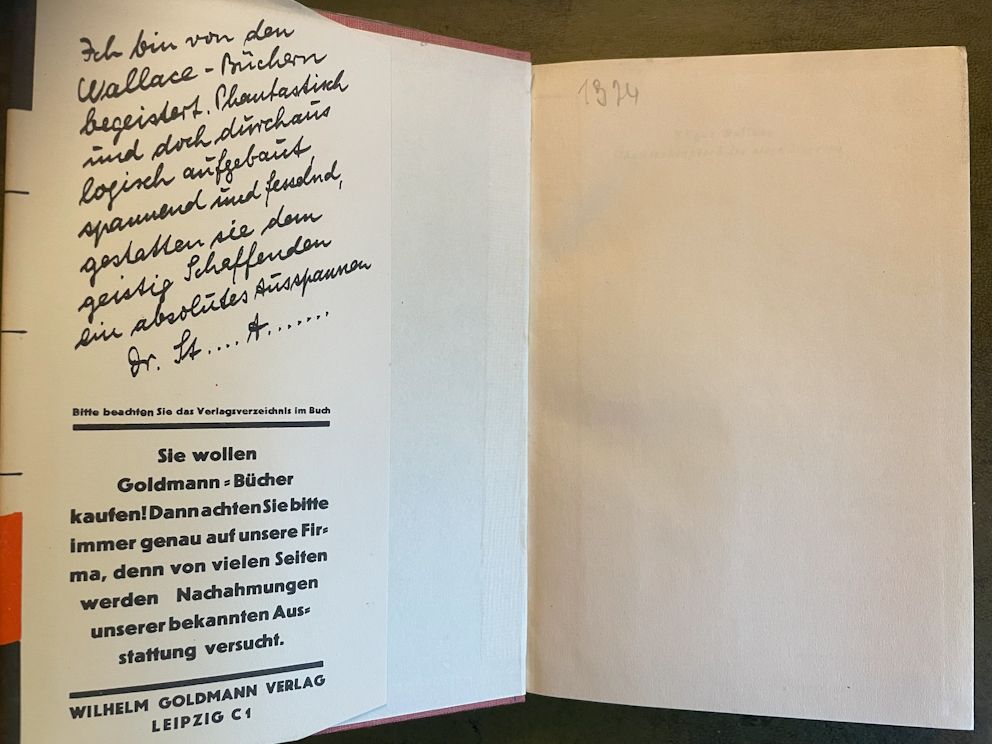 Ich bin von den
Wallace-Büchern
begeistert. Phantastisch
und doch durchaus
logisch aufgebaut,
spannend und fesselnd,
gestatten sie dem
geistig Schaffenden
ein absolutes Ausspannen
Dr. St.... A.......
Bitte beachten Sie das Verlagsverzeichnis im Buch
Sie wollen
Goldmann=Bücher
kaufen! Dann achten Sie bitte
immer genau auf unsere Fir=
ma, denn von vielen Seiten
werden Nachahmungen
unserer bekannten Aus=
stattung versucht.
WILHELM GOLDMANN VERLAG
LEIPZIG C1
1374